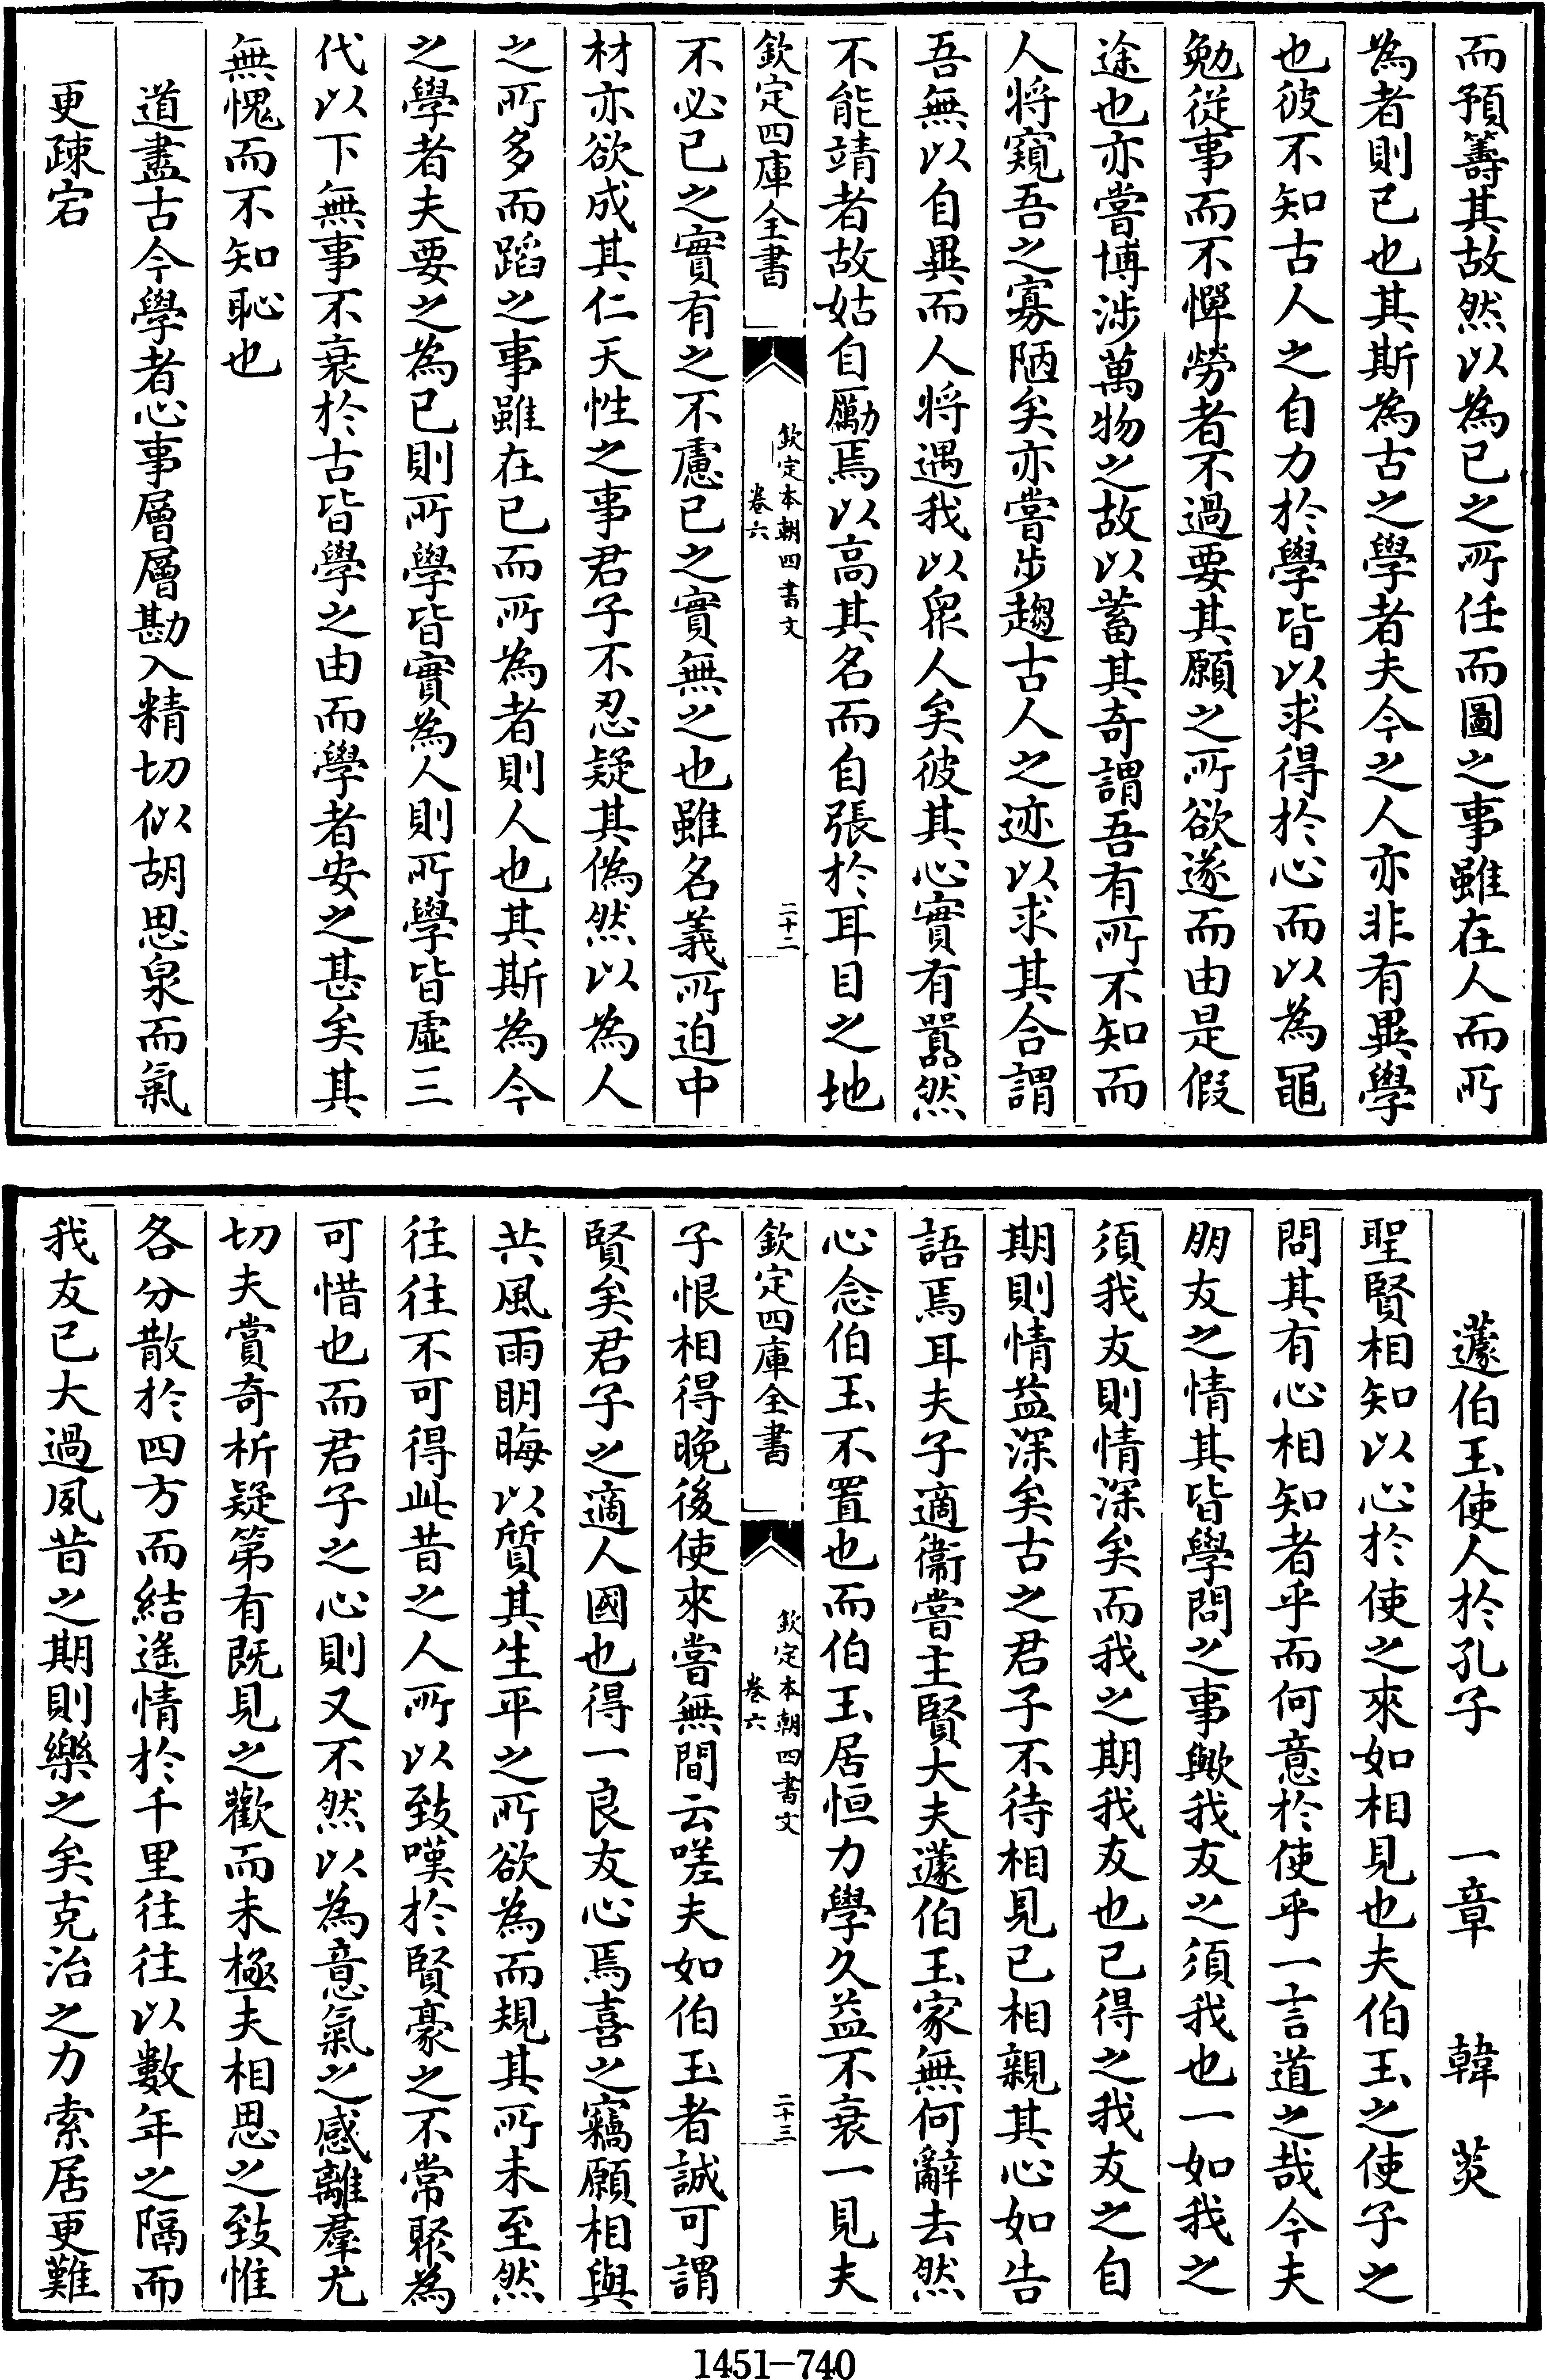 而預籌其故然以為已之所任而圖之事雖在人而所
為者則已也其斯為古之學者夫今之人亦非有異學
也彼不知古人之自力於學皆以求得於心而以為黽
勉從事而不憚勞者不過要其願之所欲遂而由是假
途也亦嘗博涉萬物之故以蓄其奇謂吾有所不知而
人將窺吾之寡陋矣亦嘗步趨古人之迹以求其合謂
吾無以自異而人將遇我以衆人矣彼其心實有嚣然
不能靖者故姑自勵焉以高其名而自張於耳目之地
欽定四庫全書
欽定本朝四書文
卷六
二十二
不必已之實有之不慮已之實無之也雖名義所迫中
材亦欲成其仁天性之事君子不忍疑其偽然以為人
之所多而蹈之事雖在已而所為者則人也其斯為今
之學者夫要之為已則所學皆實為人則所學皆虛三
代以下無事不衰於古皆學之由而學者安之甚矣其
無愧而不知恥也
道盡古今學者心事層層勘入精切似胡思泉而氣
更疎宕
蘧伯玉使人於孔子 一章 韓菼
聖賢相知以心於使之來如相見也夫伯玉之使子之
問其有心相知者乎而何意於使乎一言道之哉今夫
朋友之情其皆學問之事歟我友之須我也一如我之
須我友則情深矣而我之期我友也已得之我友之自
期則情益深矣古之君子不待相見已相親其心如告
語焉耳夫子適衞嘗主賢大夫蘧伯玉家無何辭去然
心念伯玉不置也而伯玉居恒力學久益不衰一見夫
欽定四庫全書
欽定本朝四書文
卷六
二十三
子恨相得晚後使來嘗無間云嗟夫如伯玉者誠可謂
賢矣君子之適人國也得一良友心焉喜之竊願相與
共風雨眀晦以質其生平之所欲為而規其所未至然
往往不可得此昔之人所以致嘆於賢豪之不常聚為
可惜也而君子之心則又不然以為意氣之感離羣尤
切夫賞奇析疑第有既見之歡而未極夫相思之致惟
各分散於四方而結遙情於千里往往以數年之隔而
我友已大過夙昔之期則樂之矣克治之力索居更難
1451-740